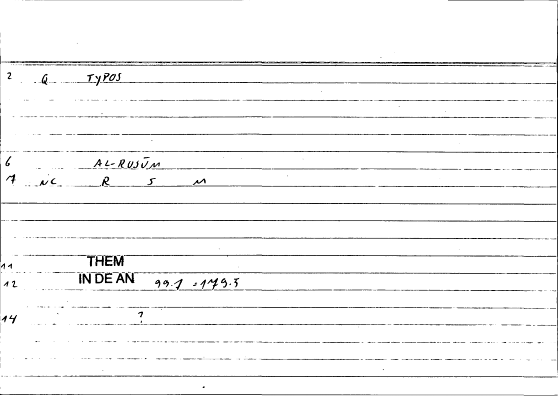 2 Q TYPOS
6 AL-RUSŪM
7 NC R S M
11 THEM
12 IN DE AN 99.1 = 179.5
14 ?